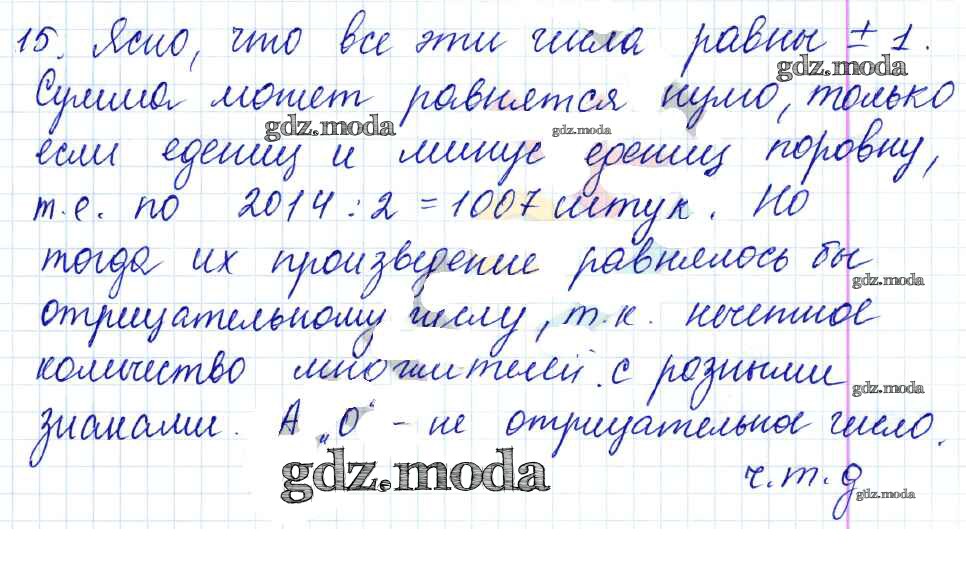 15. Ясно, что все эти числа равны ± 1.
gdz.moda
Сумма может равнятся нулю, только
gdz.moda
gdz.moda
если едениц и минус едениц поровну,
т.е. по 2014 : 2 = 1007 штук. Но
тогда их произведение равнялось бы
gdz.moda
отрицательному числу, т.к. нечетное
количество множителей с разными
gdz.moda
знаками. А „0“ - не отрицательное число.
gdz.moda
ч.т.д
gdz.moda